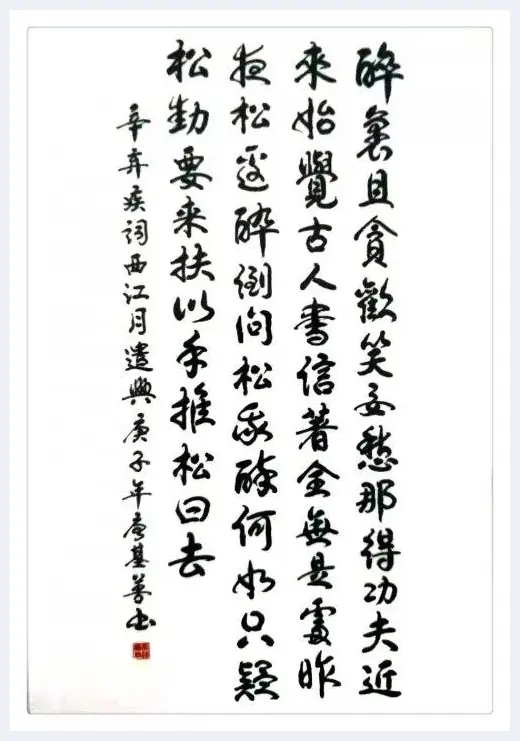 醉裏且貪歡笑要愁那得功夫近
來始覺古人書信著全無是處昨
夜松邊醉倒问松我醉何如只疑
松動要来扶以手推松曰去
辛弃疾词西江月遣興庚子年基善书